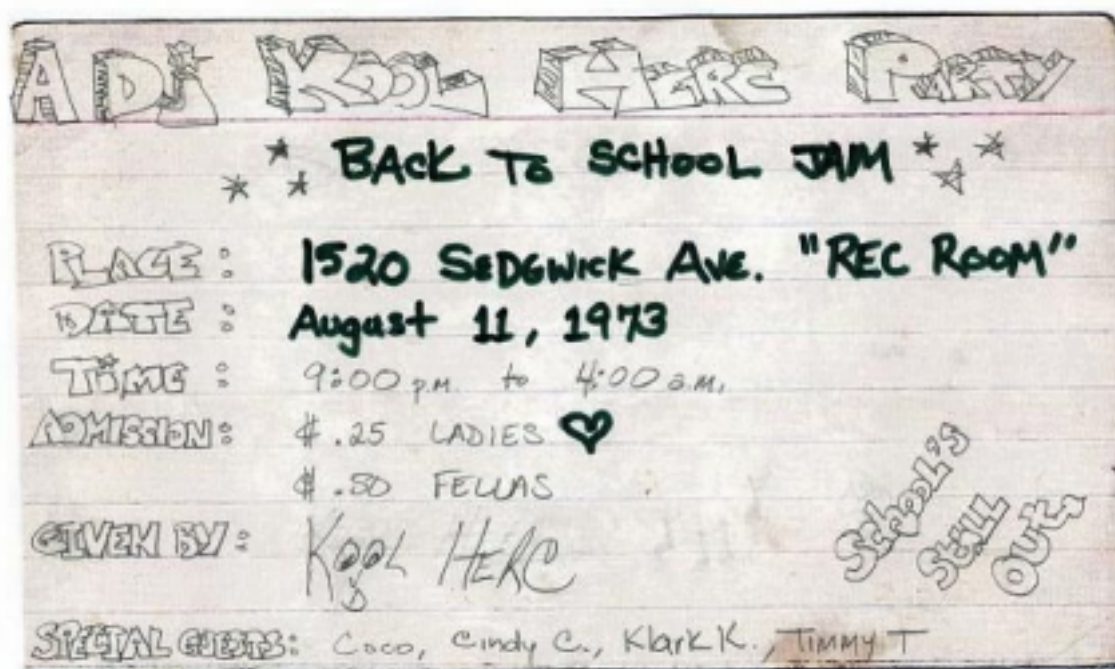 A DJ KOOL HERC PARTY
BACK TO SCHOOL JAM
PLACE: 1520 SEDGWICK AVE. "REC ROOM"
DATE: August 11, 1973
TIME: 9:00 p.m. to 4:00 a.m.
ADMISSION: $.25 LADIES
$.50 FELLAS
GIVEN BY: KOOL HERC
SPECIAL GUESTS: Coco, Cindy C., Klark K., TIMMY T
SCHOOL'S
STILL
OUT.